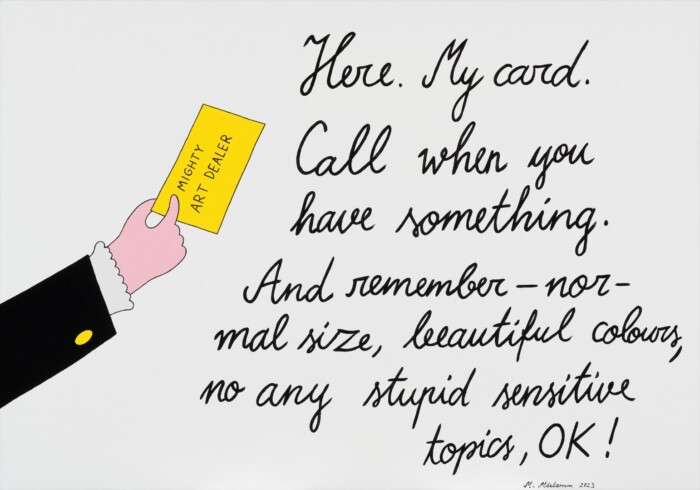 Here. My card.
Call when you
have something.
MIGHTY
ART DEALER
And remember – nor-
mal size, beautiful colours,
no any stupid sensitive
topics, OK!
2023